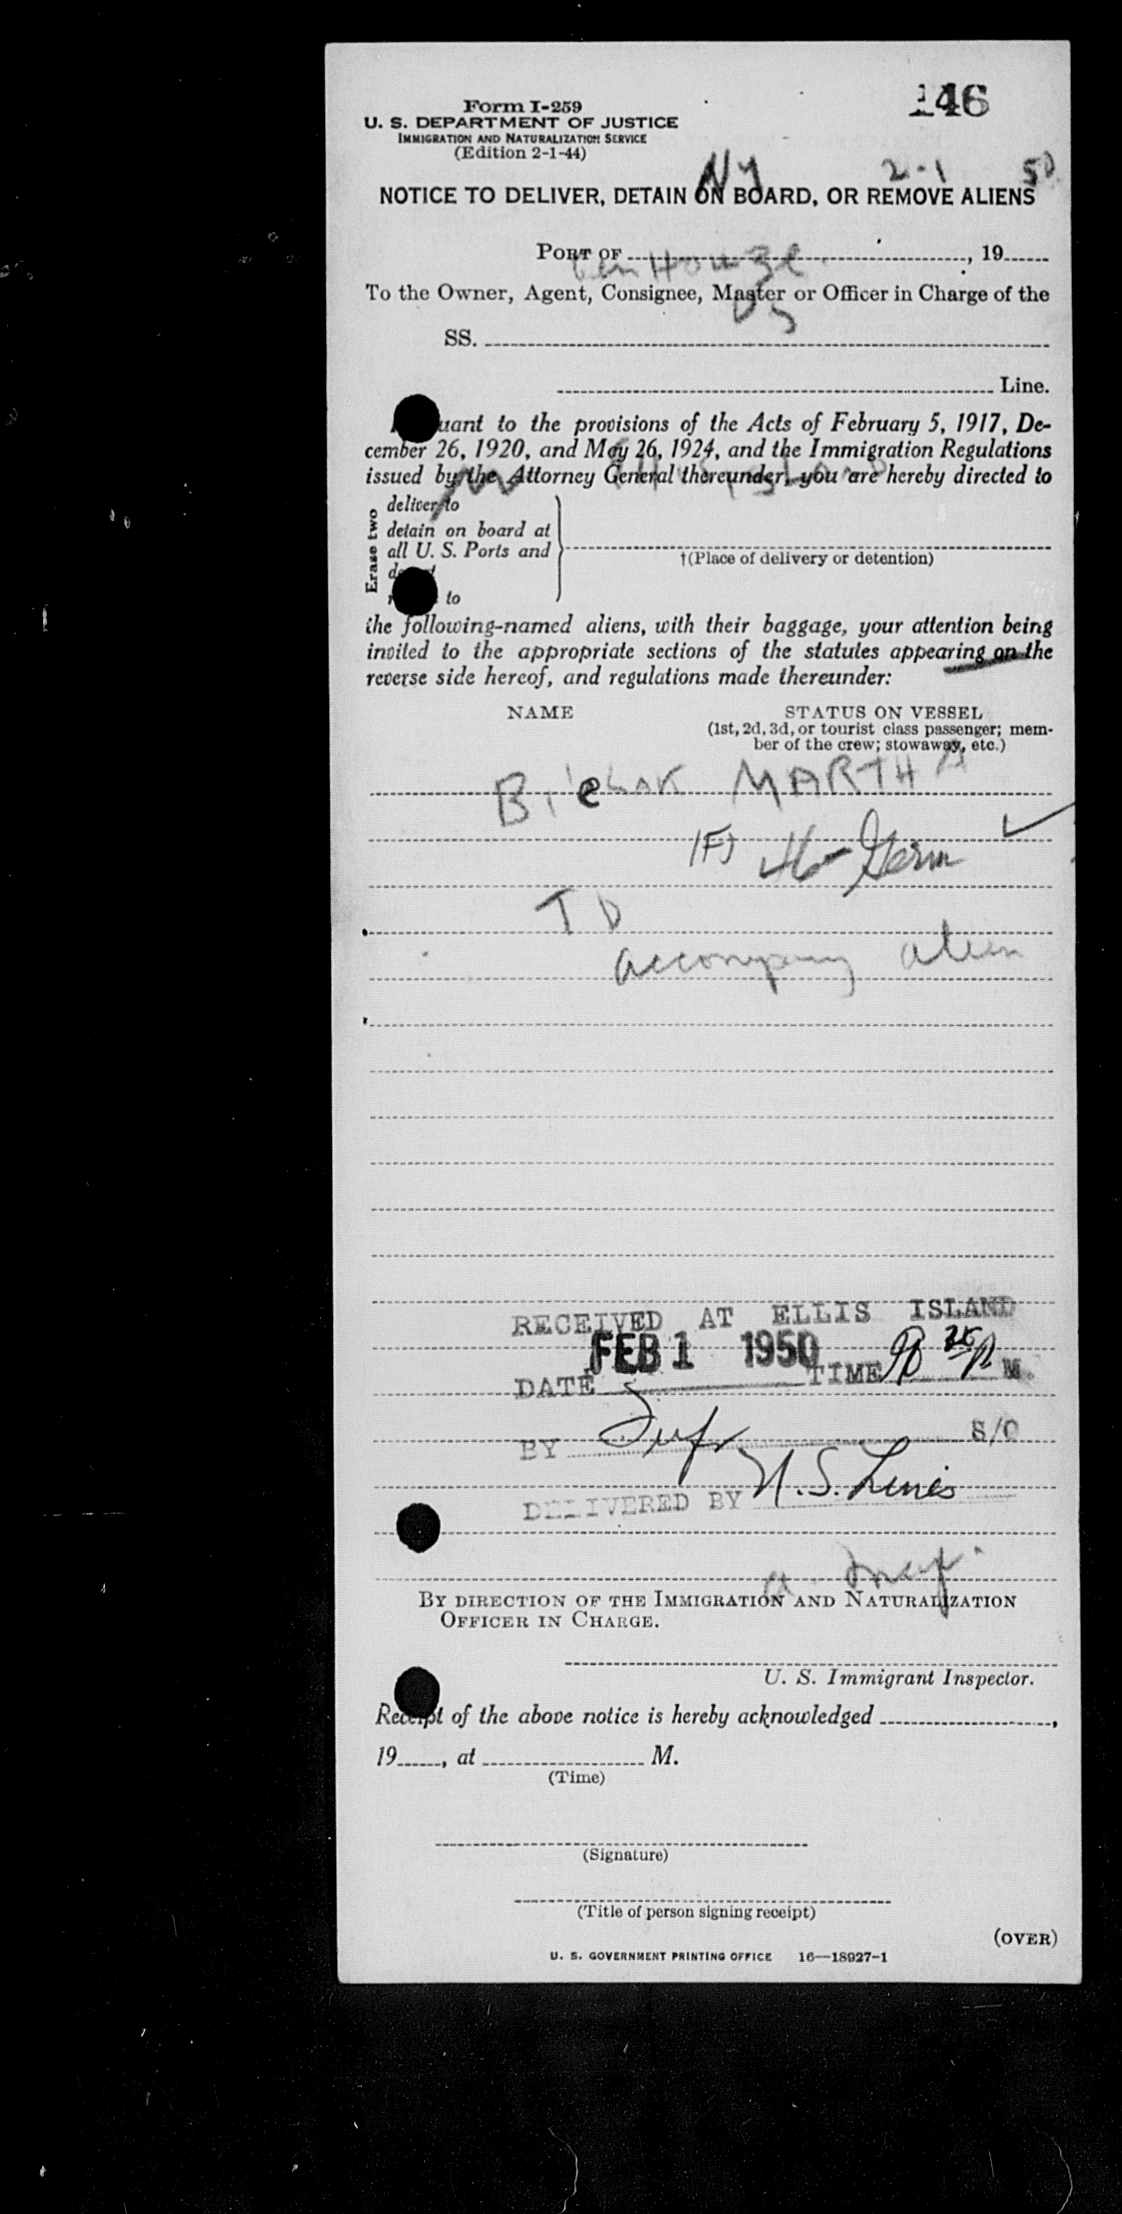 Form I-259
146
U. S. DEPARTMENT OF JUSTICE
IMMIGRATION AND NATURALIZATION SERVICE
(Edition 2-1-44)
NY 2-1 50
NOTICE TO DELIVER, DETAIN ON BOARD, OR REMOVE ALIENS
PORT OF , 19
To the Owner, Agent, Consignee, Master or Officer in Charge of the
US
SS.
Line.
uant to the provisions of the Acts of February 5, 1917, De-
cember 26, 1920, and May 26, 1924, and the Immigration Regulations
issued by the Attorney General thereunder, you are hereby directed to
Ellis Island
Erase two
deliver to
detain on board at
all U. S. Ports and
to
†(Place of delivery or detention)
the following-named aliens, with their baggage, your attention being
invited to the appropriate sections of the statutes appearing on the
reverse side hereof, and regulations made thereunder:
NAME STATUS ON VESSEL
(1st, 2d, 3d, or tourist class passenger; mem-
ber of the crew; stowaway, etc.)
BieLAK MARTHA
(F) 46 Germ ✓
T D
accompany alien
RECEIVED AT ELLIS ISLAND
FEB 1 1950
DATE TIME 9 35 P M.
BY S/O
DELIVERED BY U.S. Lines
BY DIRECTION OF THE IMMIGRATION AND NATURALIZATION
OFFICER IN CHARGE.
U. S. Immigrant Inspector.
Receipt of the above notice is hereby acknowledged ,
19 , at M.
(Time)
(Signature)
(Title of person signing receipt)
(OVER)
U. S. GOVERNMENT PRINTING OFFICE 16—18927-1